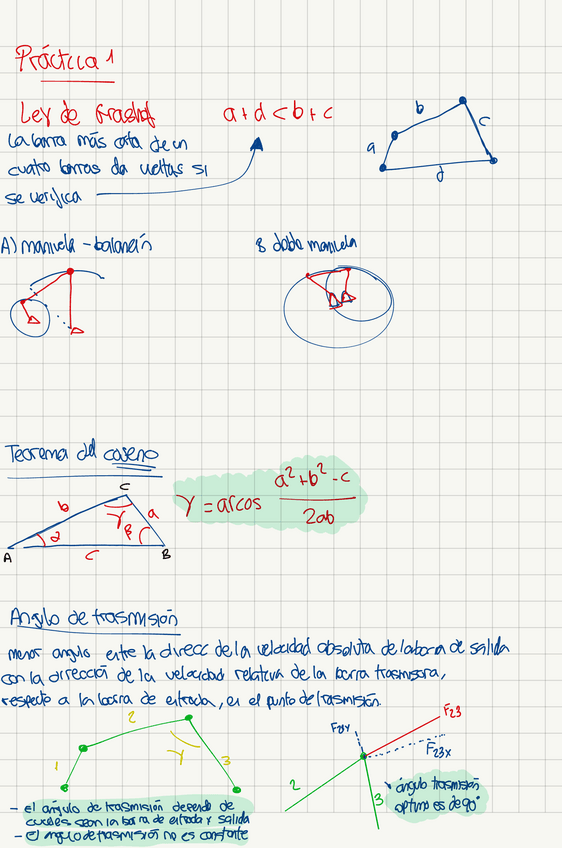 Práctica 1
Ley de Grashof a + d < b + c
La barra más corta de un
cuatro barras da vueltas si
se verifica
a b c d
A) manivela - balancín
B doble manivela
Teorema del coseno
A b C a B c α γ β
γ = arcos a² + b² - c / 2ab
Angulo de trasmisión
menor angulo entre la direcc de la velocidad absoluta de la barra de salida
con la dirección de la velocidad relativa de la barra trasmisora,
respecto a la barra de entrada, en el punto de trasmisión.
1 2 γ 3
F23Y F23 F23X
2 3
- el ángulo de trasmisión depende de
cuales sean la barra de entrada y salida
- el angulo de trasmisión no es constante
ángulo trasmisión
optimo es de 90°